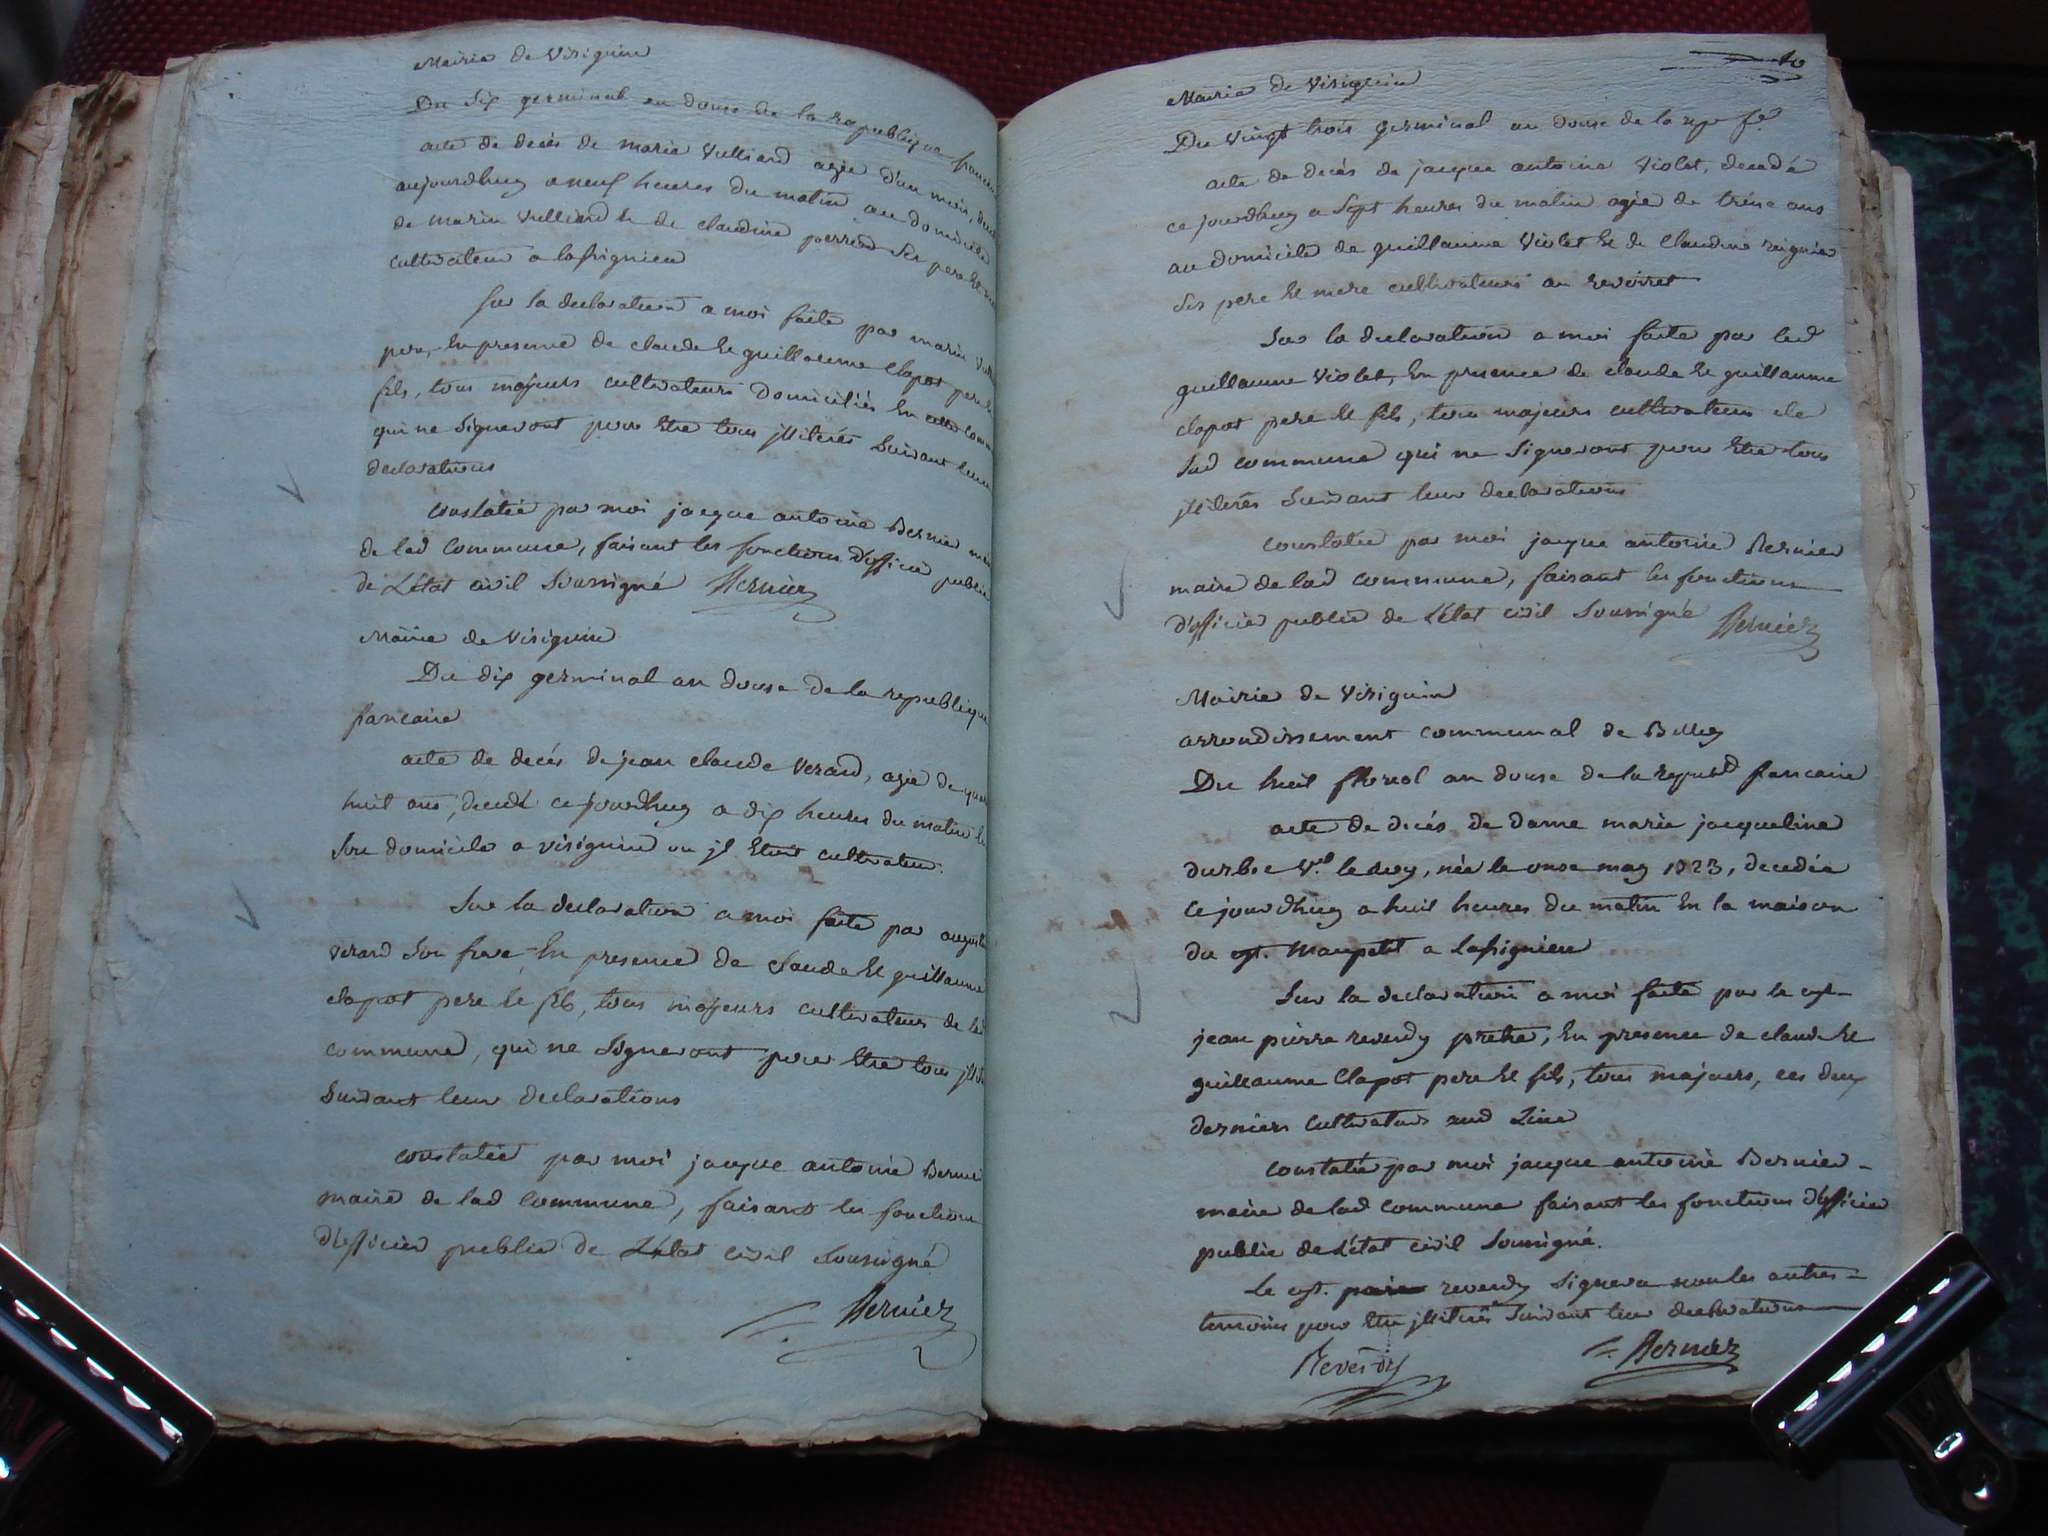 Mairie de Virignin
Du Six germinal an douse de la republique
acte de decés de marie Vulliard agée d'un mois,
aujourdhuy a neuf heures du matin au domicile
de marin Vulliard et de claudine perrend Ses pere et
cultivateur a lassignieu
Sur la declaration a moi faite par marin
pere, En presence de claude et guillaume Clapot pere et
fils, tous majeurs cultivateurs Domiciliés En cette
qui ne Signeront pour Etre tous jlliterés Suivant leurs
declarations
constatée par moi jacque antoine Bernier
de lad commune, faisant les fonctions d'officier public
de L'état civil Soussigné Bernier
Mairie de Virignin
Du dix germinal an douse de la republique
francaise
acte de decés de jean claude Verard, agée de
huit ans, decedé ce jourdhuy a dix heures du matin
Son domicile a virignin ou jl Etoit cultivateur.
Sur la declaration a moi faite par
verard Son frere En presence de claude et guillaume
clapot pere et fils, tous majeurs cultivateurs de lad
commune, qui ne Signeront pour Etre tous
Suivant leur declarations
constatée par moi jacque antoine Bernier
maire de lad commune, faisant les fonctions
d'officier public de L'état civil Soussigné
Bernier
40
Mairie de Virignin
Du Vingt trois germinal an douse de la rep fse
acte de decés de jacque antoine Violet, decedé
ce jourdhuy a Sept heures du matin agée de trése ans
au domicile de guillaume Violet et de Claudine reignier
Ses pere et mere cultivateurs au revoiret
Sur la declaration a moi faite par led
guillaume Violet, En presence de claude et guillaume
clapot pere et fils, tous majeurs cultivateurs de
lad commune qui ne Signeront pour Etre tous
jlliterés Suivant leur declarations
constatée par moi jacque antoine Bernier
maire de lad commune, faisant les fonctions
d'officier public de L'état civil Soussigné Bernier
Mairie de Virignin
arrondissement communal de Belley
Du huit floreal an douse de la republ francaise
acte de decés de dame marie jacqueline
durbec Ve. , née le onse may 1723, decedée
ce jourdhuy a huit heures du matin En la maison
du cyt. Maupetit a Lassignieu
Sur la declaration a moi faite par le cyt
jean pierre reverdy prêtre, En presence de claude et
guillaume Clapot pere et fils, tous majeurs, ces deux
derniers cultivateurs
constatée par moi jacque antoine Bernier
maire de lad commune faisant les fonctions d'officier
public de L'état civil Soussigné.
Le cyt. reverdy Signera non les autres
temoins pour Etre jlliterés Suivant leur declarations
Reverdy Bernier